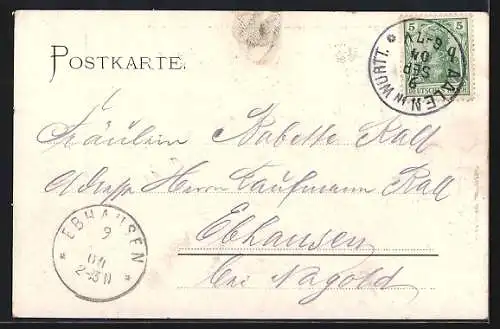 POSTKARTE.
5 5
DEUTSCHES REICH
AALEN IN WÜRTT.
9 SEP 04
Fräulein Babette Kall
Adresse Herrn Kaufmann Kall
Ebhausen
bei Nagold
EBHAUSEN
9
04
2-3 N